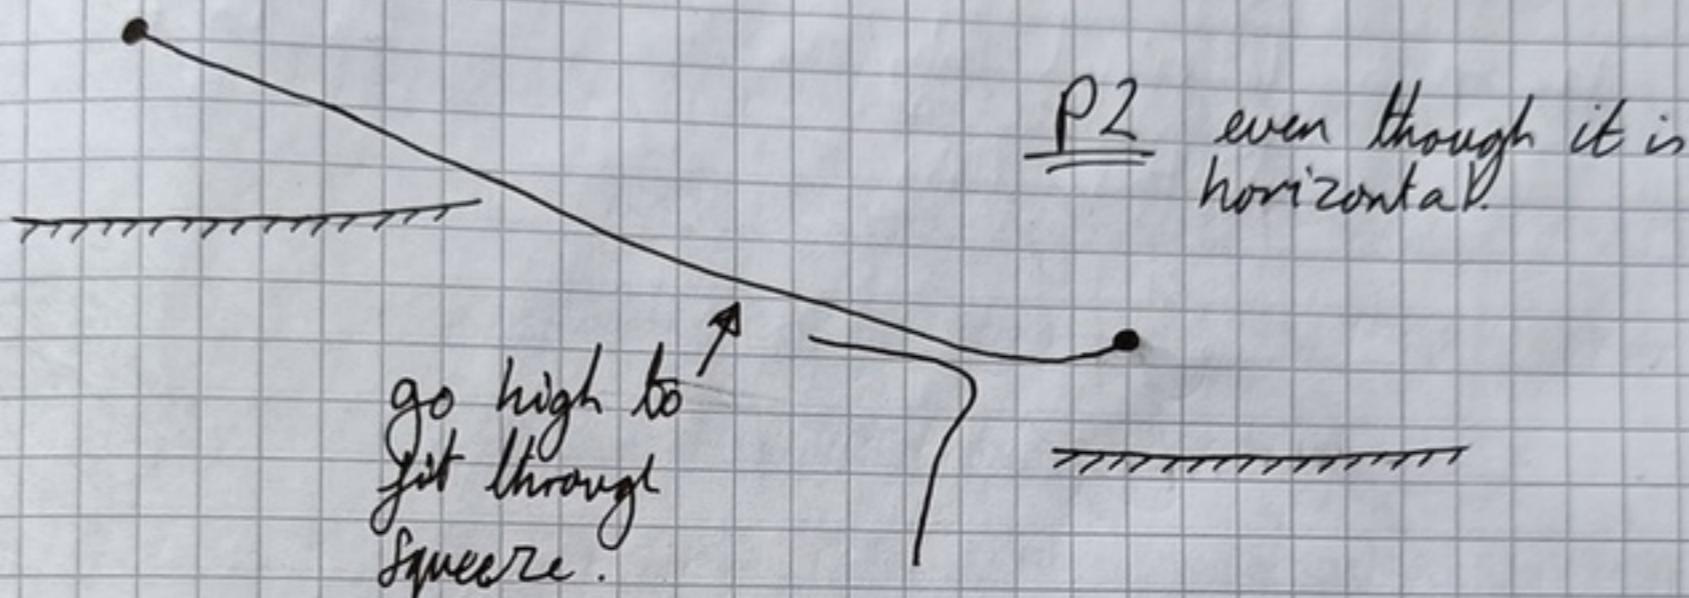 P2 even though it is
horizontal.
go high to
fit through
squeeze.